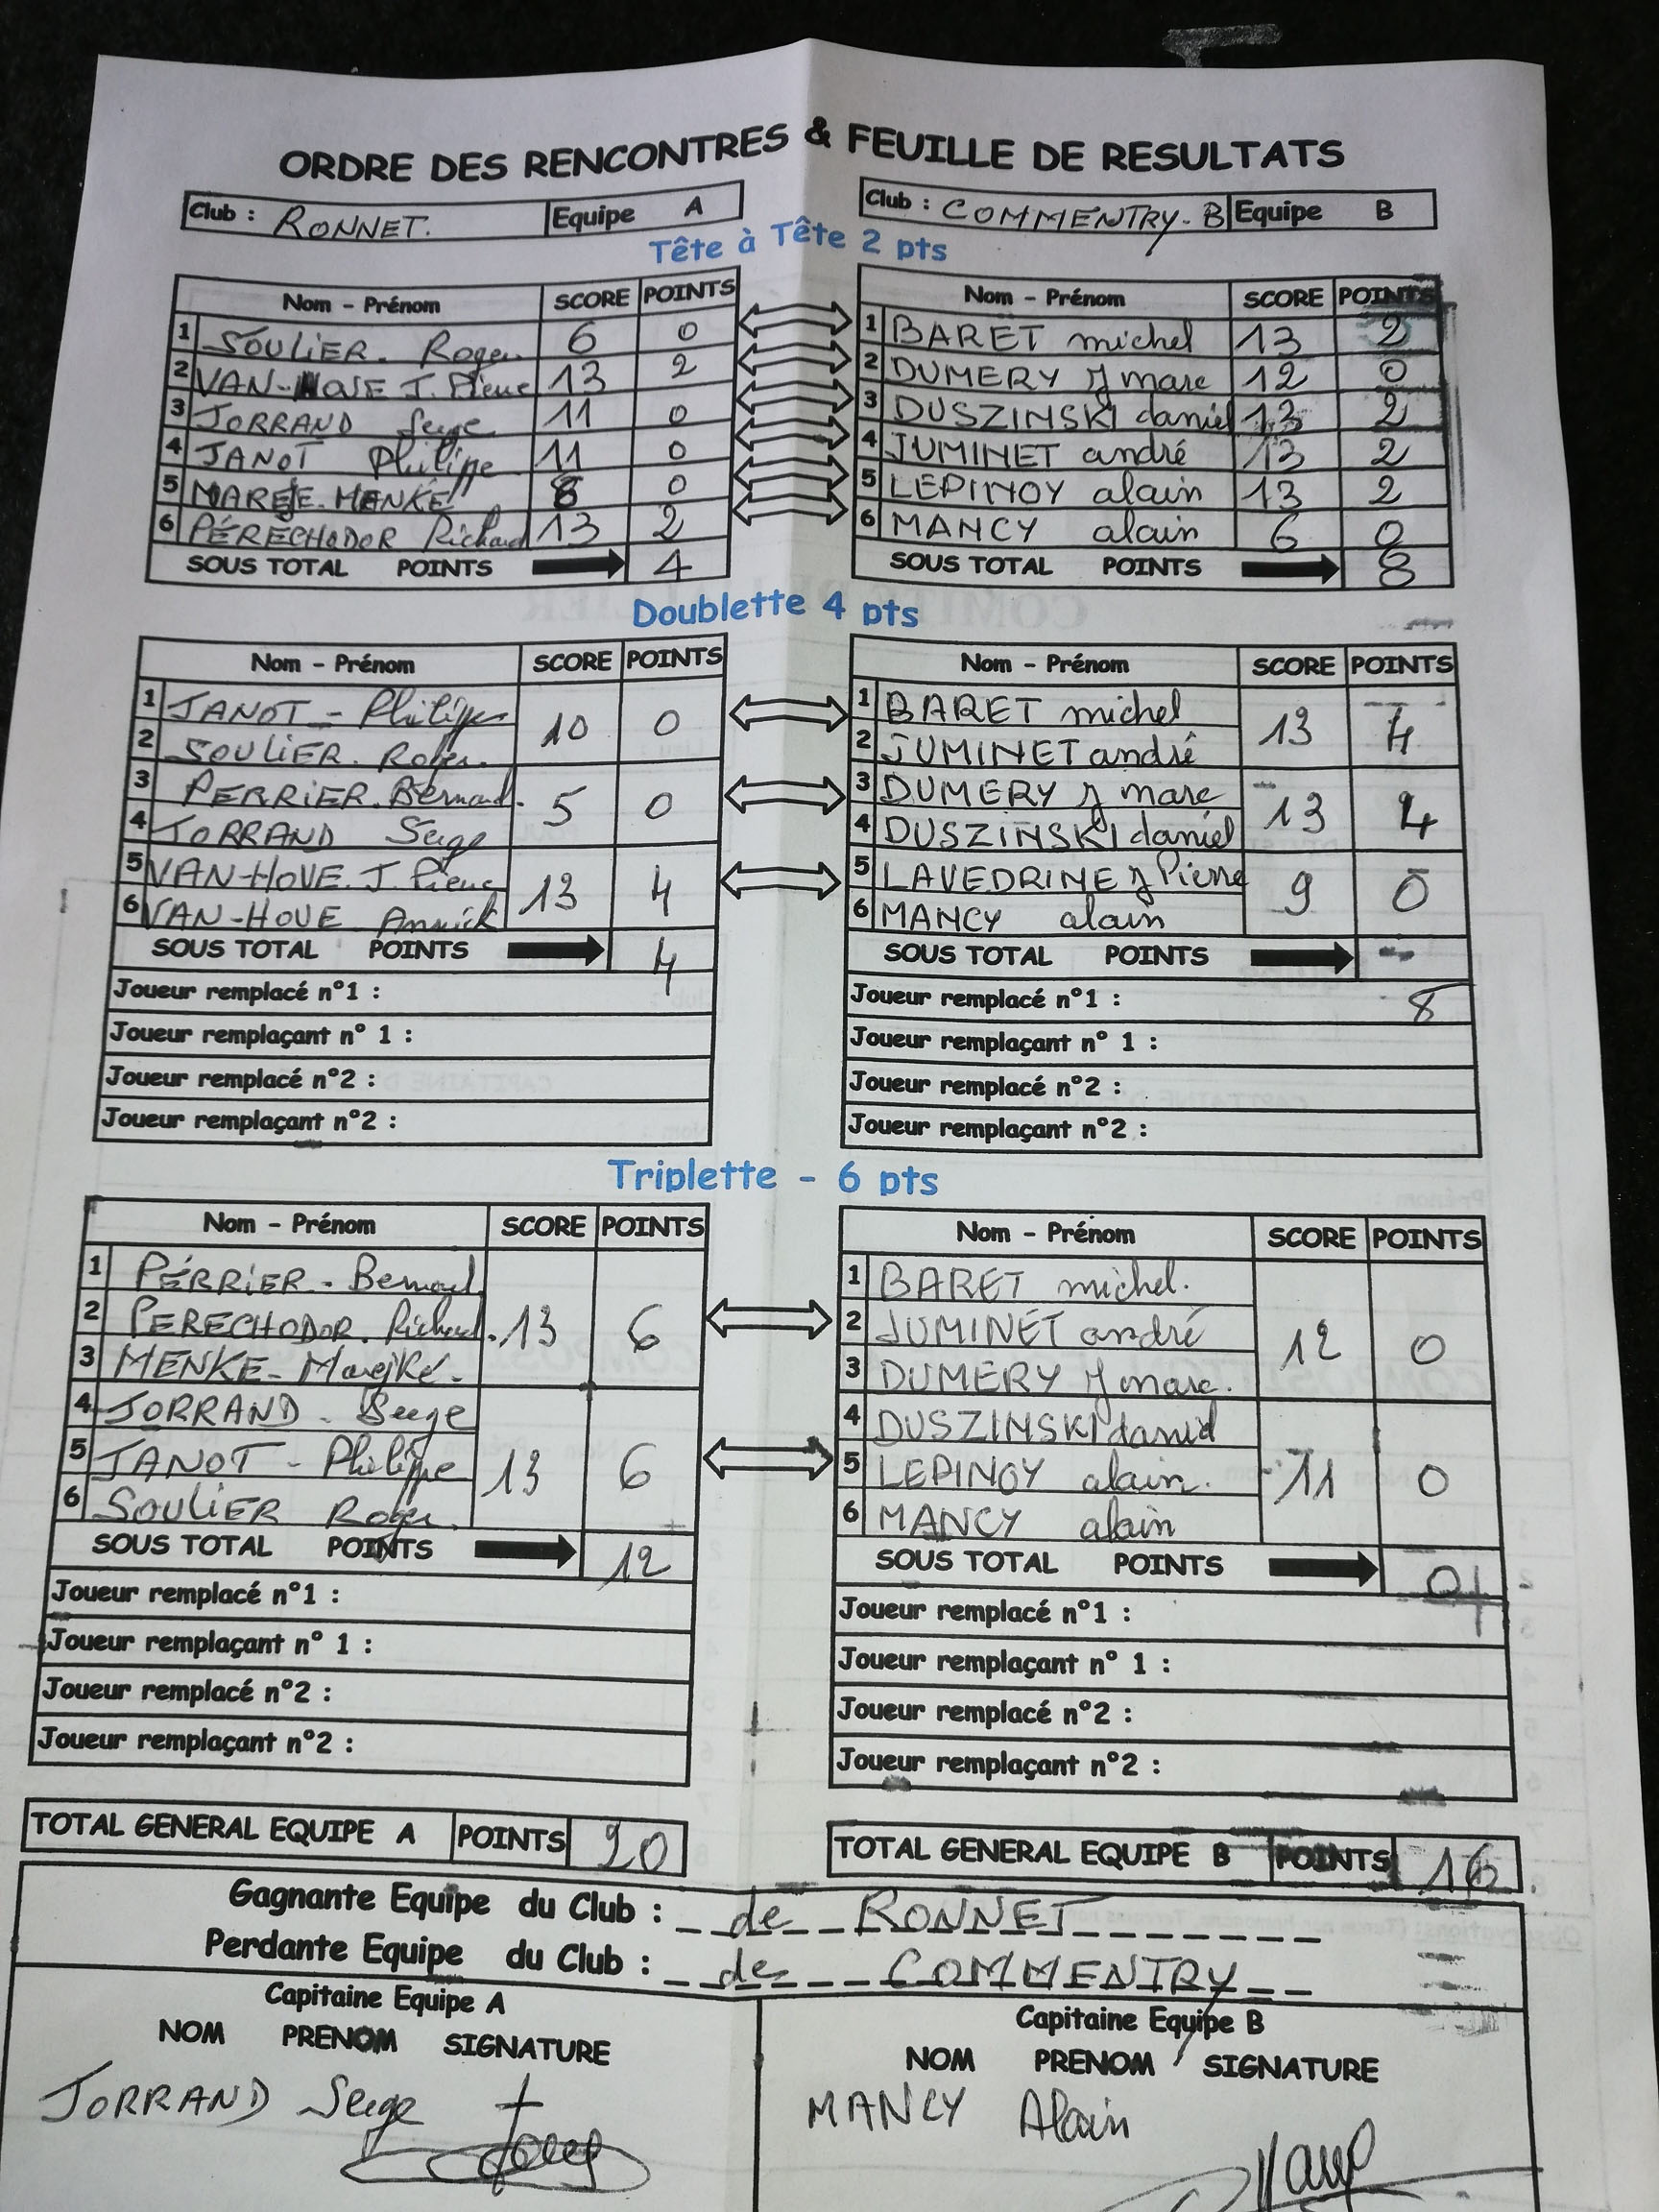 ORDRE DES RENCONTRES & FEUILLE DE RESULTATS
Club : RONNET. Equipe A
Club : COMMENTRY-B Equipe B
Tête à Tête 2 pts
Nom - Prénom SCORE POINTS
1 SOULIER. Roger 6 0
2 VAN-HOVE J. Pierre 13 2
3 JORRAND Serge 11 0
4 JANOT Philippe 11 0
5 MAREJE. MENKE 8 0
6 PÉRECHODOR Richard 13 2
SOUS TOTAL POINTS 4
Nom - Prénom SCORE POINTS
1 BARET michel 13 2
2 DUMERY J marc 12 0
3 DUSZINSKI daniel 13 2
4 JUMINET andré 13 2
5 LEPINOY alain 13 2
6 MANCY alain 6 0
SOUS TOTAL POINTS 8
Doublette 4 pts
Nom - Prénom SCORE POINTS
1 JANOT - Philippe 10 0
2 SOULIER. Roger.
3 PERRIER. Bernard. 5 0
4 JORRAND Serge
5 VAN-HOVE. J. Pierre 13 4
6 VAN-HOVE Annick
SOUS TOTAL POINTS 4
Joueur remplacé n°1 :
Joueur remplaçant n° 1 :
Joueur remplacé n°2 :
Joueur remplaçant n°2 :
Nom - Prénom SCORE POINTS
1 BARET michel 13 4
2 JUMINET andré
3 DUMERY J marc 13 4
4 DUSZINSKI daniel
5 LAVEDRINE J Pierre 9 0
6 MANCY alain
SOUS TOTAL POINTS
Joueur remplacé n°1 : 8
Joueur remplaçant n° 1 :
Joueur remplacé n°2 :
Joueur remplaçant n°2 :
Triplette - 6 pts
Nom - Prénom SCORE POINTS
1 PÉRRIER - Bernard
2 PERECHODOR. Richard. 13 6
3 MENKE - Marejke.
4 JORRAND - Serge
5 JANOT - Philippe 13 6
6 SOULIER Roger.
SOUS TOTAL POINTS 12
Joueur remplacé n°1 :
Joueur remplaçant n° 1 :
Joueur remplacé n°2 :
Joueur remplaçant n°2 :
Nom - Prénom SCORE POINTS
1 BARET michel.
2 JUMINET andré 12 0
3 DUMERY J marc.
4 DUSZINSKI daniel
5 LEPINOY alain. 11 0
6 MANCY alain
SOUS TOTAL POINTS 0
Joueur remplacé n°1 :
Joueur remplaçant n° 1 :
Joueur remplacé n°2 :
Joueur remplaçant n°2 :
TOTAL GENERAL EQUIPE A POINTS 20
TOTAL GENERAL EQUIPE B POINTS 16
Gagnante Equipe du Club : de RONNET
Perdante Equipe du Club : de COMMENTRY
Capitaine Equipe A
NOM PRENOM SIGNATURE
JORRAND Serge
Capitaine Equipe B
NOM PRENOM SIGNATURE
MANCY Alain